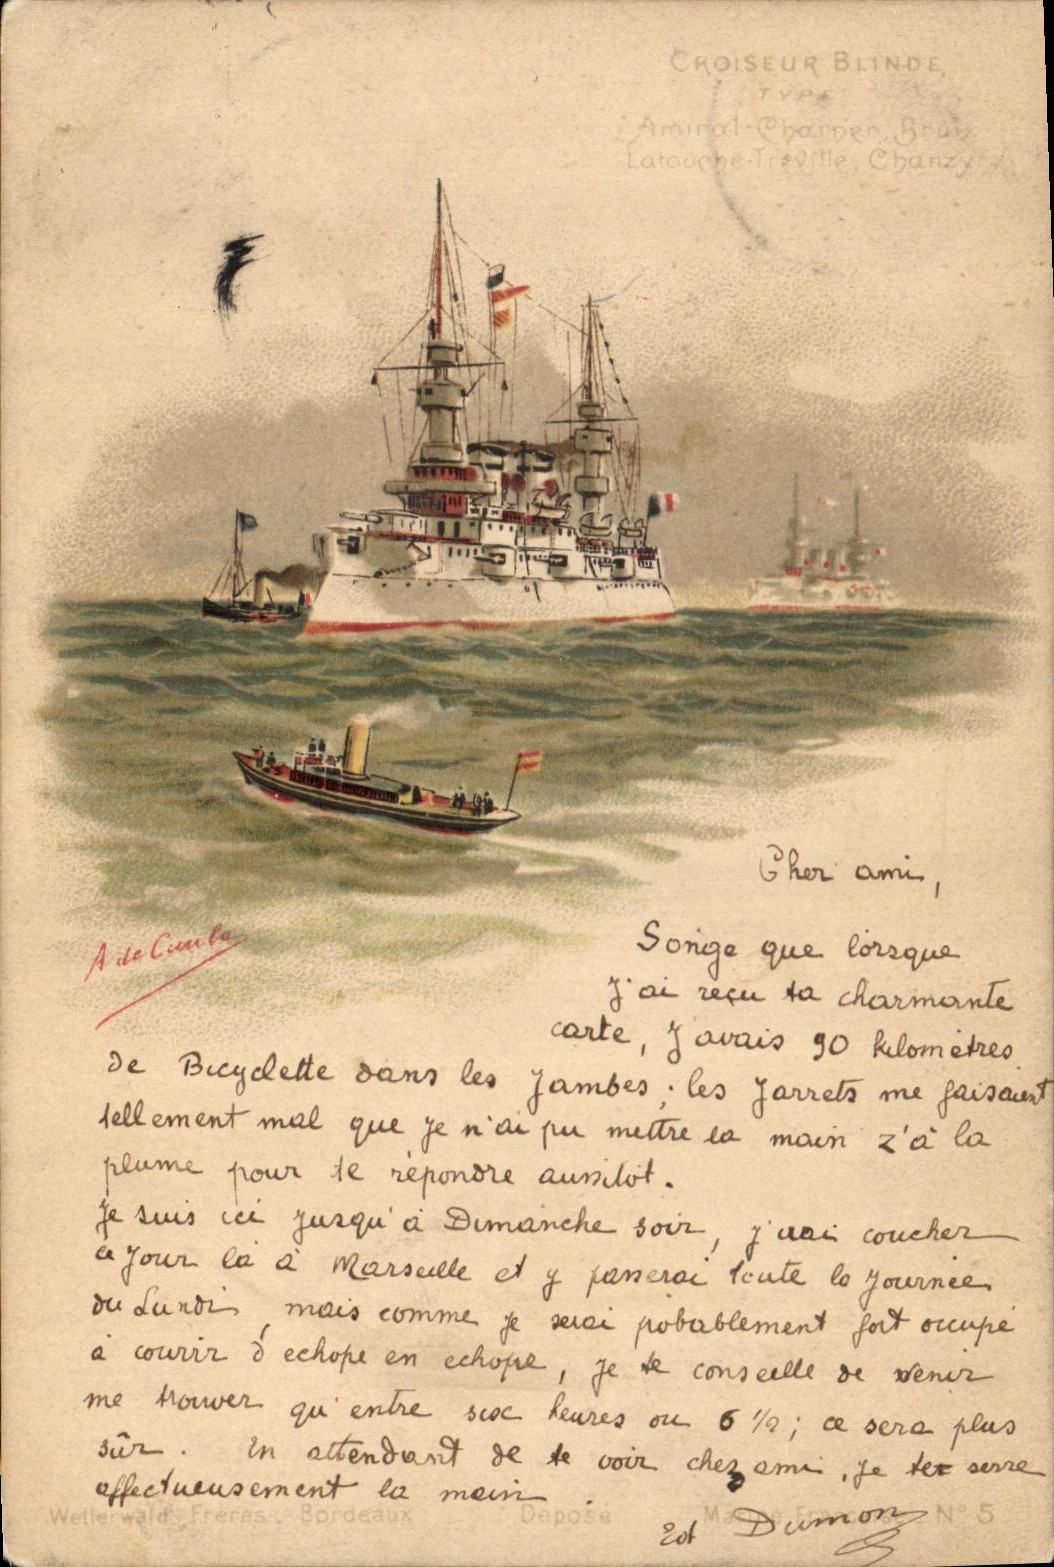 CROISEUR BLINDE
TYPE
Amiral-Charner, Bruix
Latouche-Treville, Chanzy
A de Caula
Cher ami,
Songe que lorsque
j'ai reçu ta charmante
carte, j'avais 90 kilomètres
de Bicyclette dans les jambes; les jarrets me faisaient
tellement mal que je n'ai pu mettre la main z'à la
plume pour te répondre aussitôt.
Je suis ici jusqu'à Dimanche soir, j'irai coucher
ce jour là à Marseille et y passerai toute la journée
du Lundi, mais comme je serai pobablement fort occupé
à courir d'echope en echope, je te conseille de venir
me trouver qu'entre six heures ou 6 1/2; ce sera plus
sûr. En attendant de te voir cher ami, je te serre
affectueusement la main.
Ed Dumon
Wetterwald Freres. Bordeaux Deposé Marine Française N° 5